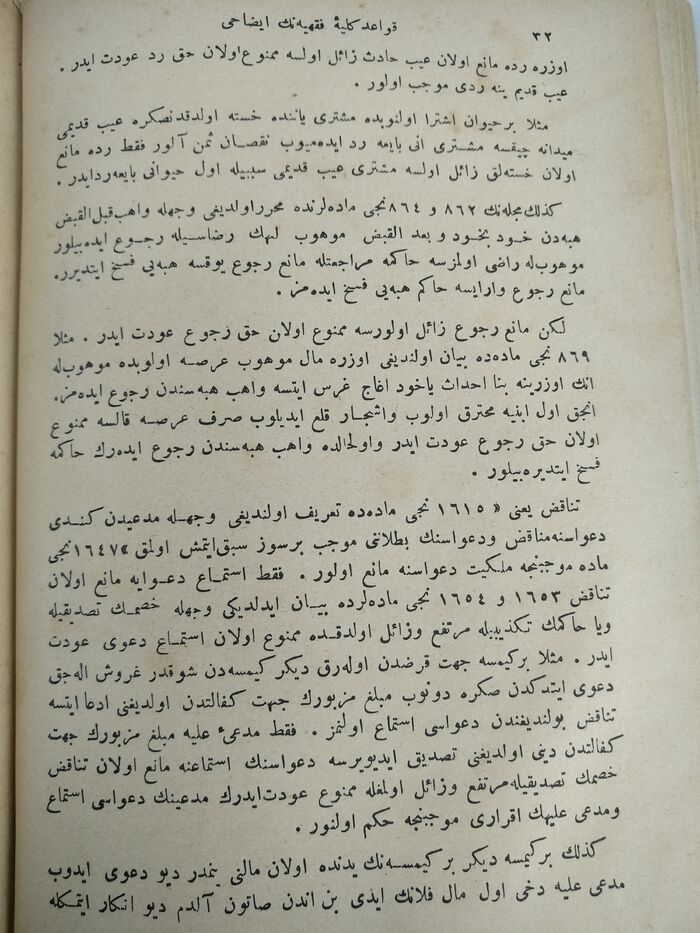 ٣٢
قواعد كليهٔ فقهيه‌نك ايضاحى
اوزره رده مانع اولان عيب حادث زائل اولسه ممنوع اولان حق رد عودت ايدر .
عيب قديم ينه ردى موجب اولور .
مثلا بر حيوان اشترا اولنوبده مشترى ياننده خسته اولدقدنصكره عيب قديمى
ميدانه چيقسه مشترى انى بايعه رد ايده‌ميوب نقصان ثمن آلور فقط رده مانع
اولان خسته‌لق زائل اولسه مشترى عيب قديمى سببيله اول حيوانى بايعه رد ايدر .
كذلك مجله‌نك ٨٦٢ و ٨٦٤ نجى ماده‌لرنده محرر اولديغى وجهله واهب قبل القبض
هبه‌دن خود بخود و بعد القبض موهوب لهك رضاسيله رجوع ايده‌بيلور
موهوب‌له راضى اولمزسه حاكمه مراجعتله مانع رجوع يوقسه هبه‌يى فسخ ايتديرر.
مانع رجوع وارايسه حاكم هبه‌يى فسخ ايده‌مز .
لكن مانع رجوع زائل اولورسه ممنوع اولان حق رجوع عودت ايدر . مثلا
٨٦٩ نجى ماده‌ده بيان اولنديغى اوزره مال موهوب عرصه اولوبده موهوب‌له
انك اوزرينه بنا احداث ياخود اغاج غرس ايتسه واهب هبه‌سندن رجوع ايده‌مز.
انجق اول ابنيه محترق اولوب واشجار قلع ايديلوب صرف عرصه قالسه ممنوع
اولان حق رجوع عودت ايدر واولحالده واهب هبه‌سندن رجوع ايده‌رك حاكمه
فسخ ايتديره‌بيلور .
تناقض يعنى « ١٦١٥ نجى ماده‌ده تعريف اولنديغى وجهله مدعيدن كندى
دعواسنه مناقض ودعواسنك بطلانتى موجب برسوز سبق ايتمش اولمق » ١٦٤٧ نجى
ماده موجبنجه ملكيت دعواسنه مانع اولور . فقط استماع دعوايه مانع اولان
تناقض ١٦٥٣ و ١٦٥٤ نجى ماده‌لرده بيان ايدلديكى وجهله خصمك تصديقيله
ويا حاكمك تكذيبيله مرتفع وزائل اولدقده ممنوع اولان استماع دعوى عودت
ايدر . مثلا بركيمسه جهت قرضدن اوله‌رق ديكر كيمسه‌دن شوقدر غروش اله‌جق
دعوى ايتدكدن صكره دونوب مبلغ مزبورك جهت كفالتدن اولديغنى ادعا ايتسه
تناقض بولنديغندن دعواسى استماع اولنمز . فقط مدعىٔ عليه مبلغ مزبورك جهت
كفالتدن دينى اولديغنى تصديق ايديويرسه دعواسنك استماعنه مانع اولان تناقض
خصمك تصديقيله مرتفع وزائل اولمغله ممنوع عودت ايدرك مدعينك دعواسى استماع
ومدعى عليهك اقرارى موجبنجه حكم اولنور .
كذلك بركيمسه ديكر بر كيمسه‌نك يدنده اولان مالنى بنمدر ديو دعوى ايدوب
مدعى عليه دخى اول مال فلانك ايدى بن اندن صاتون آلدم ديو انكار ايتمكله